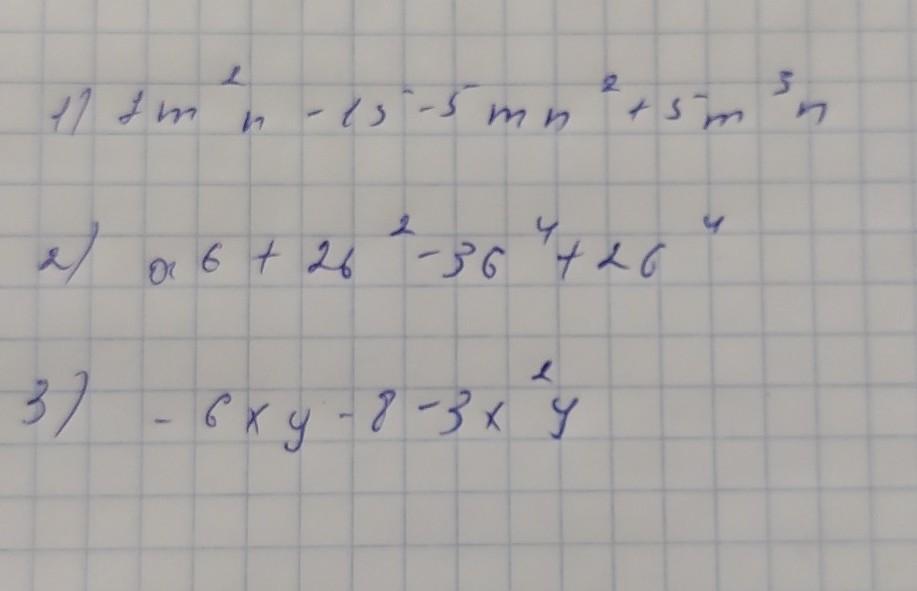 1) 7m²n - 15 - 5mn² + 5m³n
2) ab + 2b² - 3b⁴ + 2b⁴
3) - 6xy - 8 - 3x²y